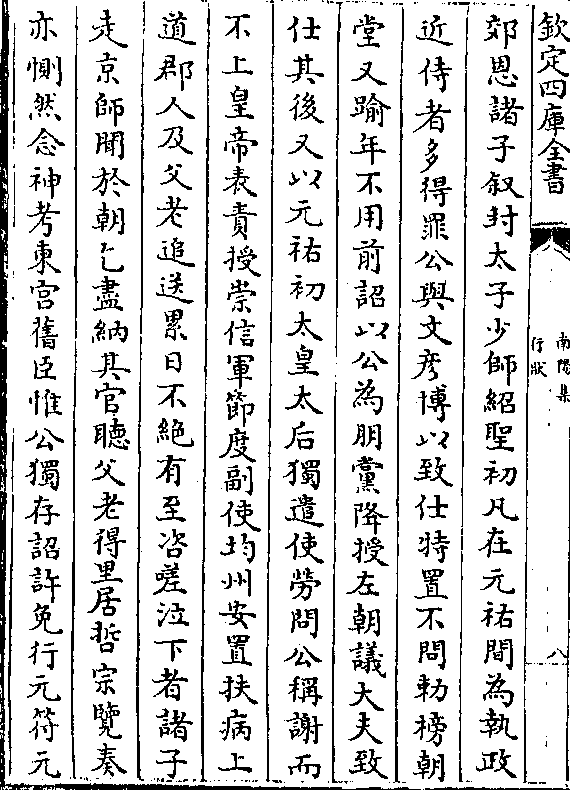 欽定四庫全書
南陽集
行狀
八
郊恩諸子叙封太子少師紹聖初凡在元祐間為執政
近侍者多得罪公與文彦博以致仕特置不問勅榜朝
堂又踰年不用前詔以公為朋黨降授左朝議大夫致
仕其後又以元祐初太皇太后獨遣使勞問公稱謝而
不上皇帝表責授崇信軍節度副使均州安置扶病上
道郡人及父老追送累日不絶有至咨嗟泣下者諸子
走京師聞於朝乞盡納其官聽父老得里居哲宗覽奏
亦惻然念神考東宮舊臣惟公獨存詔許免行元符元